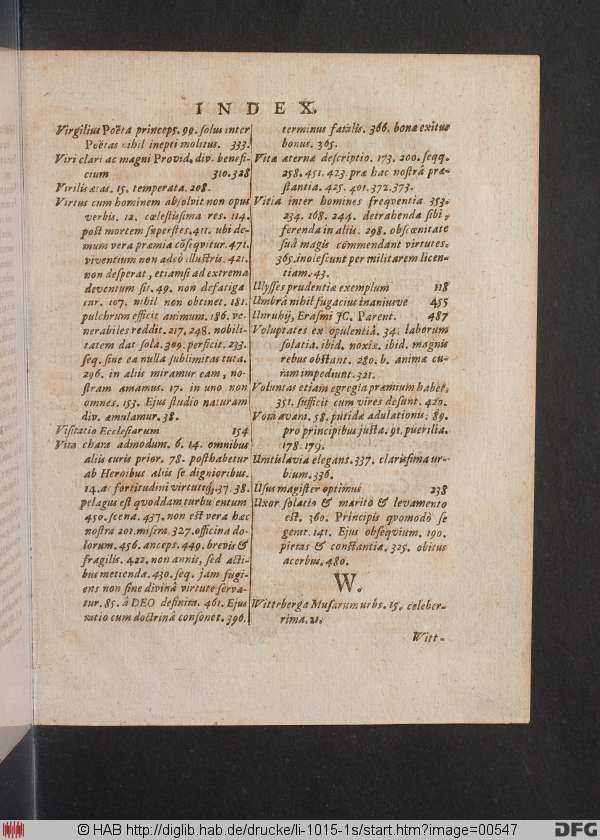 INDEX.
Virgilius Poëta princeps. 99. solus inter
Poëtas nihil inepti molitus. 333.
Viri clari ac magni Provid. div. benefi-
cium 310.328
Virilis ætas. 15. temperata. 208.
Virtus cum hominem absolvit non opus
verbis. 12. cœlestissima res. 114.
post mortem superstes. 411. ubi de-
mum vera præmia cõseqvitur. 471.
viventium non adeò illustris. 421.
non desperat, etiamsi ad extrema
deventum sit. 49. non defatiga
tur. 107. nihil non obtinet. 181.
pulchrum efficit animum. 186. ve-
nerabiles reddit. 217. 248. nobili-
tatem dat sola. 309. perficit. 233.
seq. sine ea nulla sublimitas tuta.
296. in aliis miramur eam, no-
stram amamus. 17. in uno non
omnes. 153. Ejus studio naturam
div. æmulamur. 38.
Visitatio Ecclesiarum 154
Vita chara admodum. 6. 14. omnibus
aliis curis prior. 78. posthabetur
ab Heroibus aliis se dignioribus.
14. ac fortitudini virtuteq;. 37. 38.
pelagus est quoddam turbulentum
450. scena. 437. non est vera hac
nostra 201. misera. 327. officina do-
lorum. 456. anceps. 449. brevis &
fragilis. 422. non annis, sed acti-
bus metienda. 430. seq. jam fugi-
ens non sine divinâ virtute serva-
tur. 85. â DEO definita. 461. Ejus
ratio cum doctrinâ consonet. 396.
terminus fatalis. 366. bonæ exitus
bonus. 365.
Vitæ æternæ descriptio. 173. 200. seqq.
258. 451. 423. præ hac nostrâ præ-
stantia. 425. 401. 372. 373.
Vitia inter homines freqventia 353.
234. 168. 244. detrahenda sibi,
ferenda in aliis. 298. obscœnitate
suâ magis commendant virtutes.
365. inolescunt per militarem licen-
tiam. 43.
Ulysses prudentiæ exemplum 118
Umbrâ nihil fugacius inaniusve 455
Unruhij, Erasmi JC. Parent. 487
Voluptates ex opulentiâ. 34. laborum
solatia. ibid. noxiæ. ibid. magnis
rebus obstant. 280. b. animæ cu-
ram impediunt. 321.
Voluntas etiam egregia præmium habet.
351. sufficit cum vires desunt. 420.
Vota avara. 58. putidæ adulationis. 89.
pro principibus justa. 91. puerilia.
178. 179.
Uratislavia elegans. 337. clarissima ur-
bium. 336.
Usus magister optimus 238
Uxor solatio & maritò & levamento
est. 360. Principis qvomodò se
gerat. 141. Ejus obseqvium. 190.
pietas & constantia. 325. obitus
acerbus. 480.
W.
Wittrberga Musarum urbs. 15. celeber-
rima. 21.
Witt-
© HAB http://diglib.hab.de/drucke/li-1015-1s/start.htm?image=00547
DFG